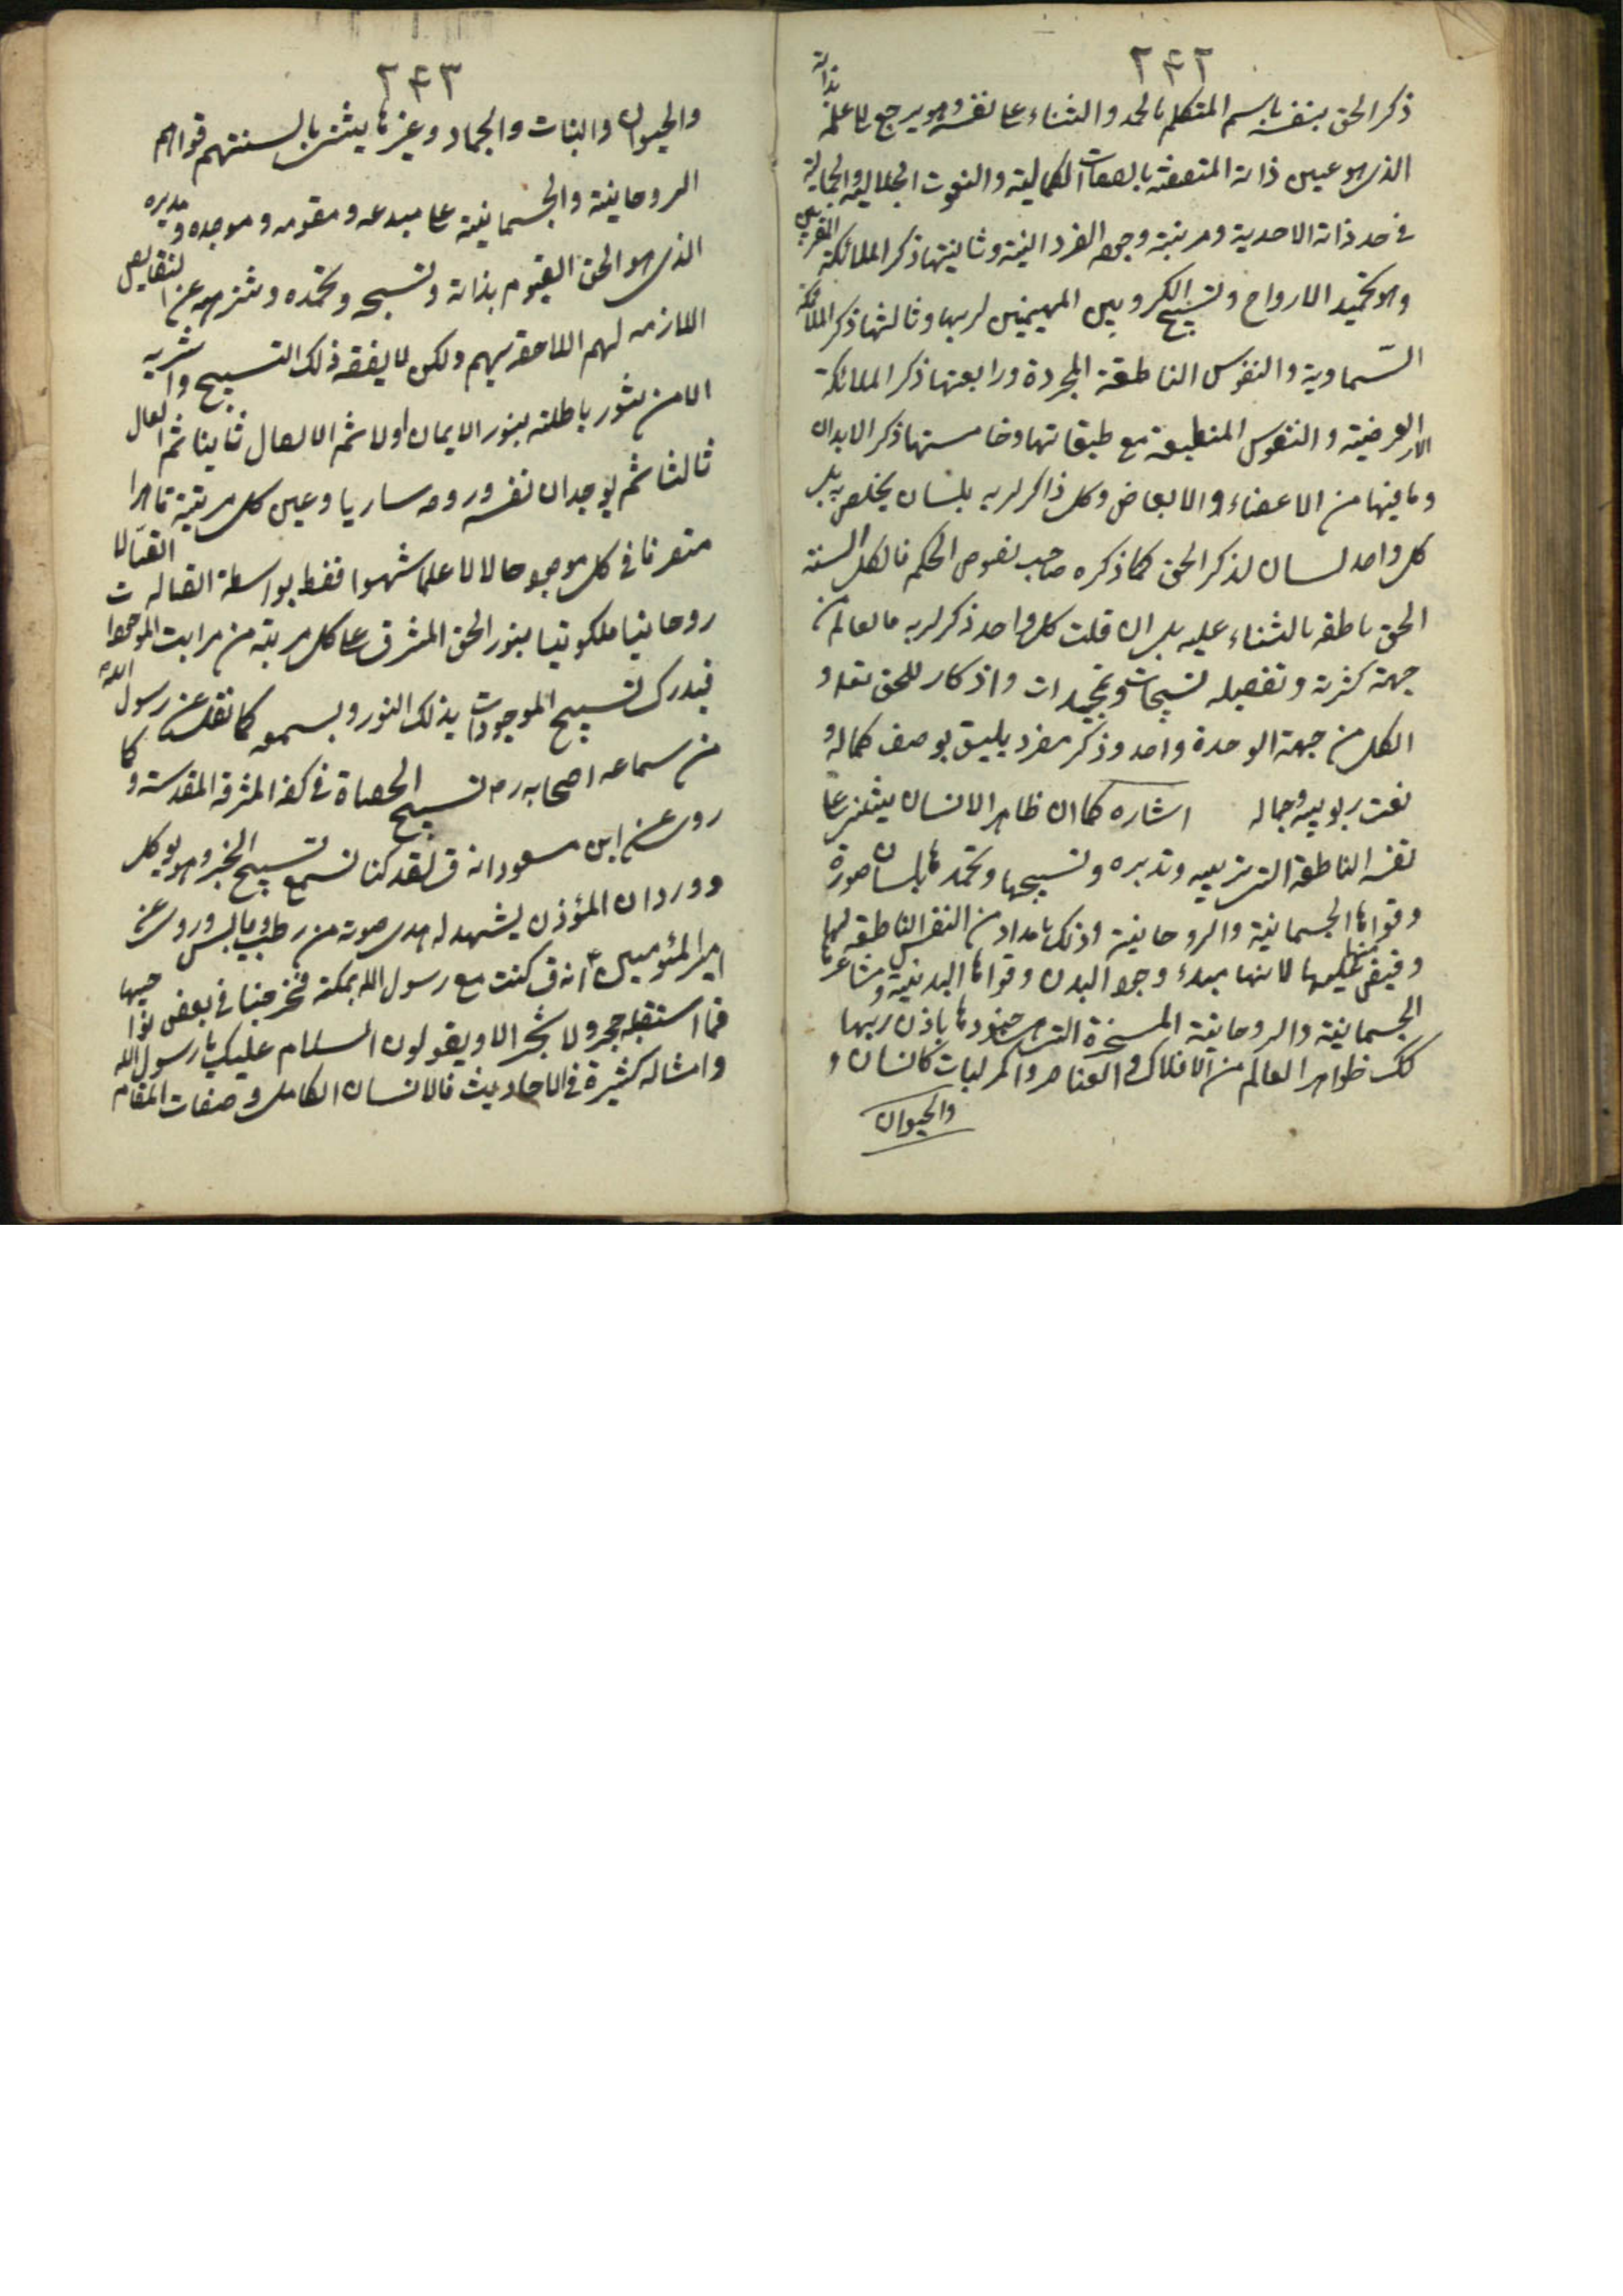 ٢٤٢
ذكر الحق بنفسه باسم المتكلم بالحمد والثناء على نفسه وهو يرجع الى علمه بذاته
الذى هو عين ذاته المتصفة بالصفات الكمالية والنعوت الجلالية والجمالية
فى حد ذاته الاحدية ومرتبة وجوده الفردانية وثانيتها ذكر الملائكة المقربين
وهو تحميد الارواح وتسبيح الكروبين المهيمين لربها وثالثها ذكر الملائكة
السّماوية والنفوس الناطقة المجردة ورابعتها ذكر الملائكة
الارضية والنفوس المنطبعة مع طبقاتها وخامستها ذكر الابدان
وما فيها من الاعضاء والابعاض وكل ذاكر لربه بلسان يختص به بل
كل واحد لسان لذكر الحق كما ذكره صاحب فصوص الحكم فالكل السنة
الحق ناطقة بالثناء عليه بل ان قلت كل واحد ذكر لربه فالعالم من
جهة كثرته وتفصيله تسبيحات وتمجيدات واذكار للحق تعالى و
الكل من جهة الوحدة واحد وذكر مفرد يليق بوصف كماله و
نعت ربوبيته وجماله اشاره كما ان ظاهر الانسان يثنى على
نفسه الناطقة التى تربيه وتدبره وتسبحها وتحمدها بلسان صورته
وقواها الجسمانية والروحانية وذلك بامداد من النفس الناطقة لها
وفيض منها عليها لانها مبدء وجود البدن وقواها البدنية ومشاعرها
الجسمانية والروحانية المسخرة التى هى جنودها باذن ربها
كك ظواهر العالم من الافلاك والعناصر والمركبات كالانسان و
والحيوان
٢٤٣
والحيوان والنبات والجماد وغيرها يثنى بالسنتهم قواهم
الروحانية والجسمانية على مبدعه ومقومه وموجده ومدبره
الذى هو الحق القيوم بذاته وتسبحه وتحمده وتنزهه عن النقايص
اللازمه لهم اللاحقة بهم ولكن لا يفقه ذلك التسبيح والتنزيه
الا من تنور باطنه بنور الايمان اولا ثم الايقان ثانيا ثم العيان
ثالثا ثم بوجدان نفسه وروحه ساريا وعين كل مرتبة ظاهرا
متصرفا فى كل موجود حالا لا علما شهودا فقط بواسطة اتصاله اتصالا
روحانيا ملكوتيا بنور الحق المشرق على كل مرتبة من مراتب الموجودات
فيدرك تسبيح الموجودات بذلك النور ويسمعه كما نقل عن رسول الله
من سماعه اصحابه رض تسبيح الحصاة فى كفه المشرفة المقدسة وكما
روى عن ابن مسعود انه ق لقد كنا نسمع تسبيح الخبز وهو يوكل
وورد ان المؤذن يشهد له مدى صوته من رطب ويابس وروى عن
امير المؤمنين ع انه ق كنت مع رسول الله بمكة فخرجنا فى بعض نواحيها
فما استقبله حجر ولا شجر الا ويقولون السلام عليك يا رسول الله
وامثاله كثيرة فى الاحاديث فالانسان الكامل وصفات المقام